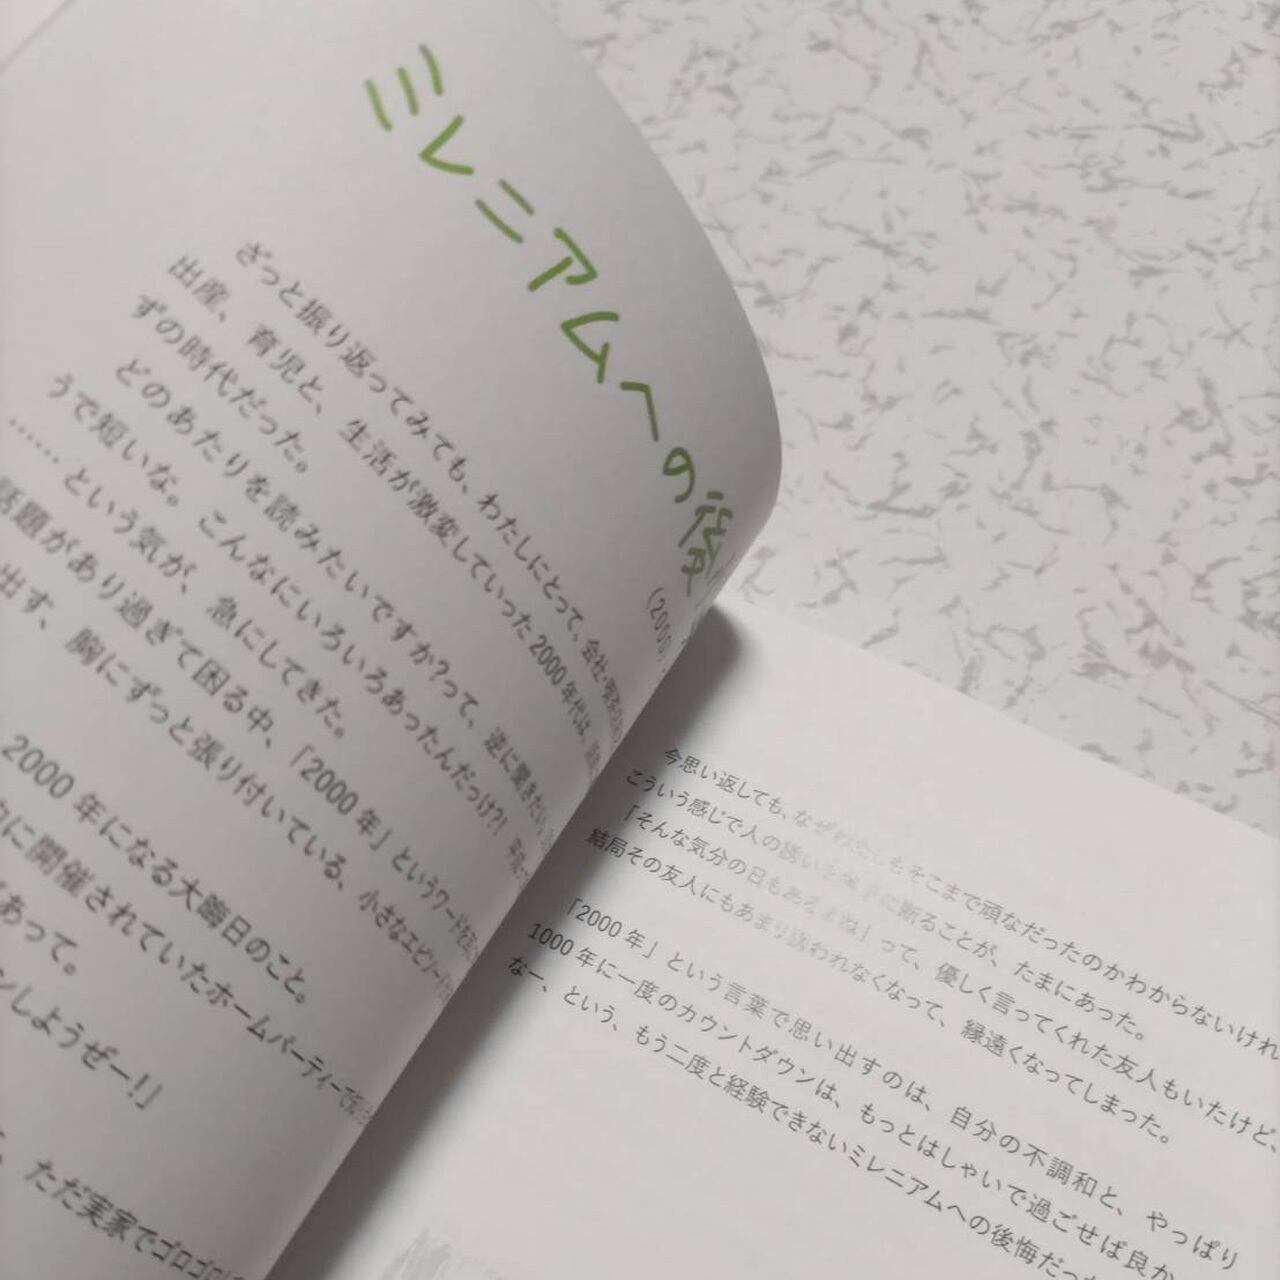 ミレニアムへの後
(200
ざっと振り返ってみても、わたしにとって、会社・
出産、育児と、生活が激変していった2000年代は、
ずの時代だった。
どのあたりを読みたいですか?って、逆に聞きたい
うで短いな。こんなにいろいろあったんだっけ?!
……という気が、急にしてきた。
話題があり過ぎて困る中、「2000年」というワードを
出す、胸にずっと張り付いている、小さなエピソード
2000年になる大晦日のこと。
に開催されていたホームパーティーで
あって。
ンしようぜー!」
、ただ実家でゴロゴロ
今思い返しても、なぜわたしもそこまで頑なだったのかわからないけれ
こういう感じで人の誘いを に断ることが、たまにあった。
「そんな気分の日もあるよね」って、優しく言ってくれた友人もいたけど、
結局その友人にもあまり誘われなくなって、縁遠くなってしまった。
「2000年」という言葉で思い出すのは、自分の不調和と、やっぱり
1000年に一度のカウントダウンは、もっとはしゃいで過ごせば良か
なー、という、もう二度と経験できないミレニアムへの後悔だっ